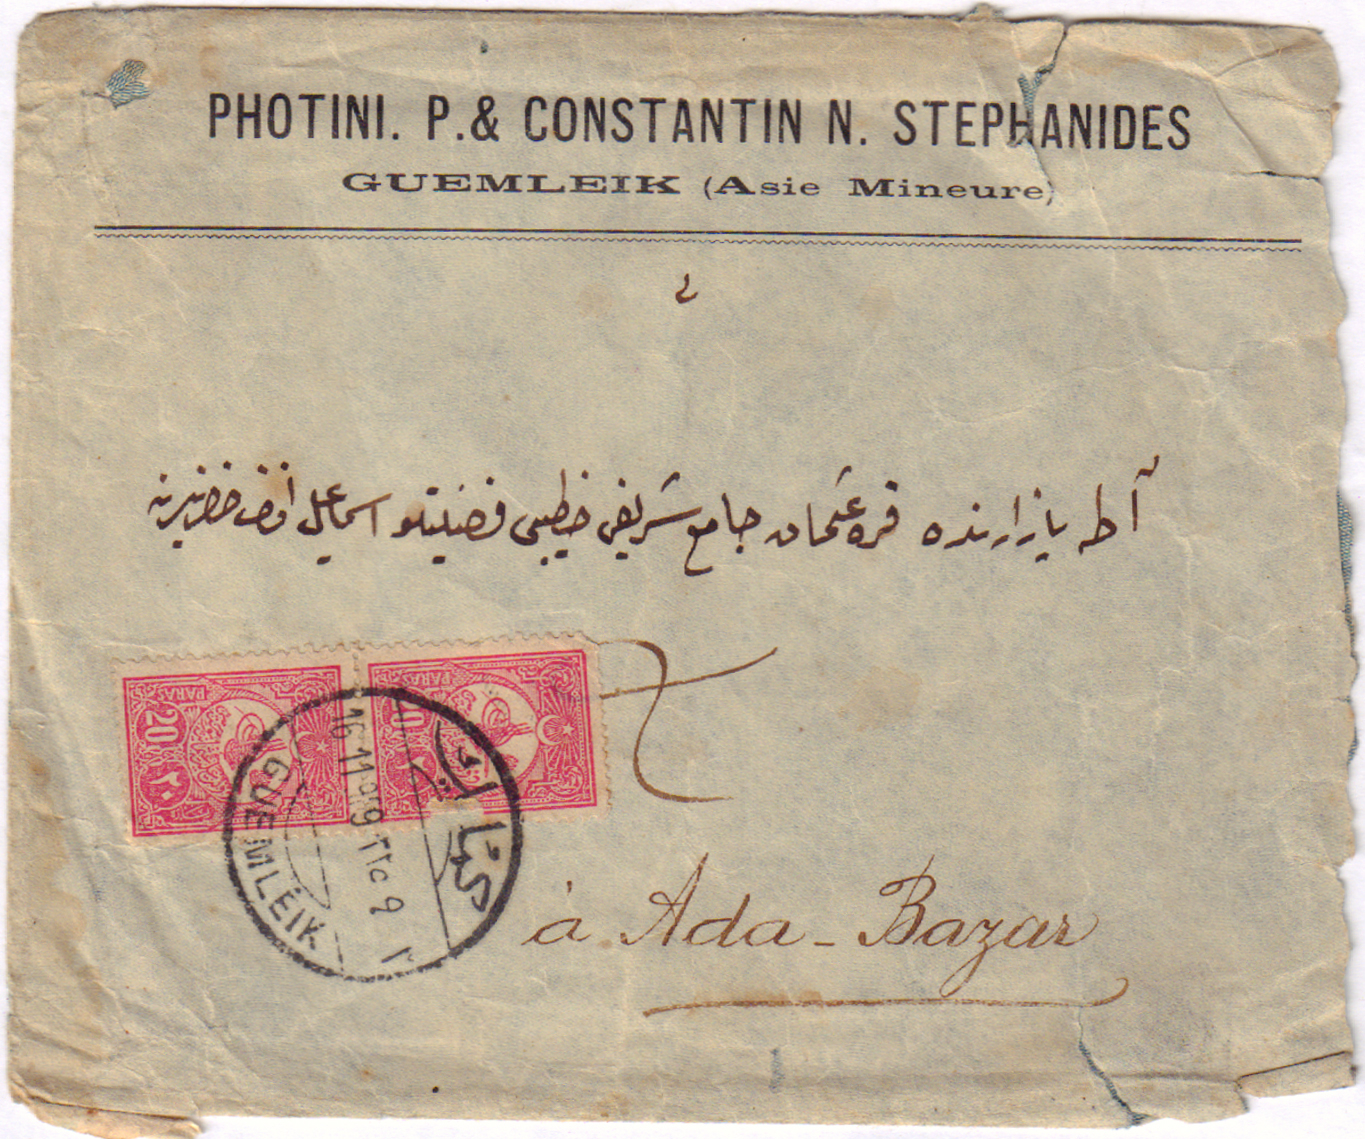 PHOTINI. P. & CONSTANTIN N. STEPHANIDES
GUEMLEIK (Asie Mineure)
آطه بازارنده قره عثمان جامع شريفى خطيبى فضيلتلو اسماعيل افندى حضرتلرينه
20 PARAS ٢٠
20 PARAS
كملك
16 11 909
GUEMLEIK
à Ada-Bazar